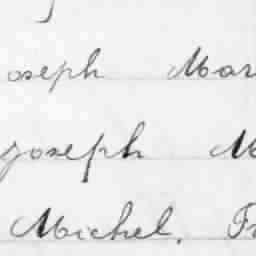 oseph Mar
Joseph M
Michel, Fr